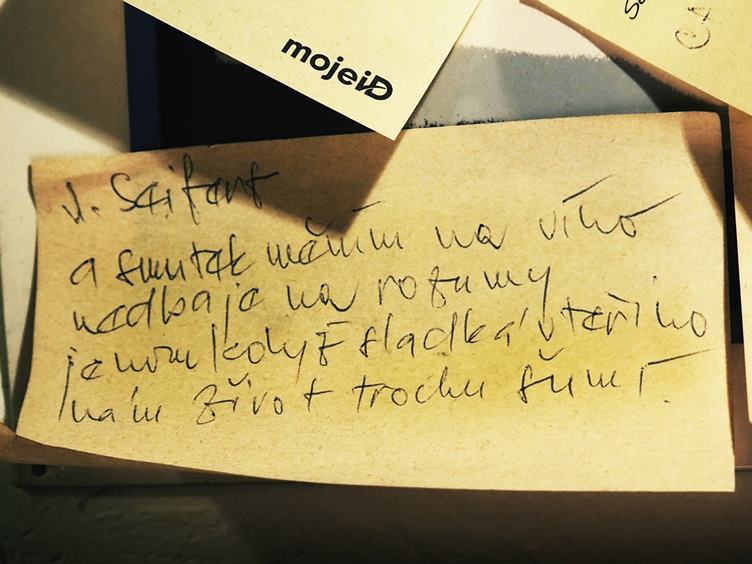 mojeiD
J. Seifert
a smutek měním na víno
nedbaje na rozumy
jenom když sladká vteřino
nám život trochu šumí.